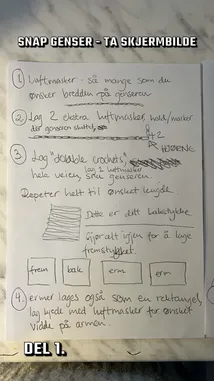 SNAP GENSER - TA SKJERMBILDE
1) Luftmasker - så mange som du
ønsker bredden på genseren
2) Lag 2 ekstra luftmasker, hold/marker
der genseren sluttet
+2
HJØRNE
3) Lag "dobble crochets"
lag 2 luftmasker
hele veien, snu genseren
Repeter helt til ønsket lengde
Dette er ditt bakstykke
Gjør alt igjen for å lage
fremstykket
frem bak erm erm
4) ermer lages også som en rektangel,
lag kjede med luftmasker for ønsket
vidde på armen
DEL 1.